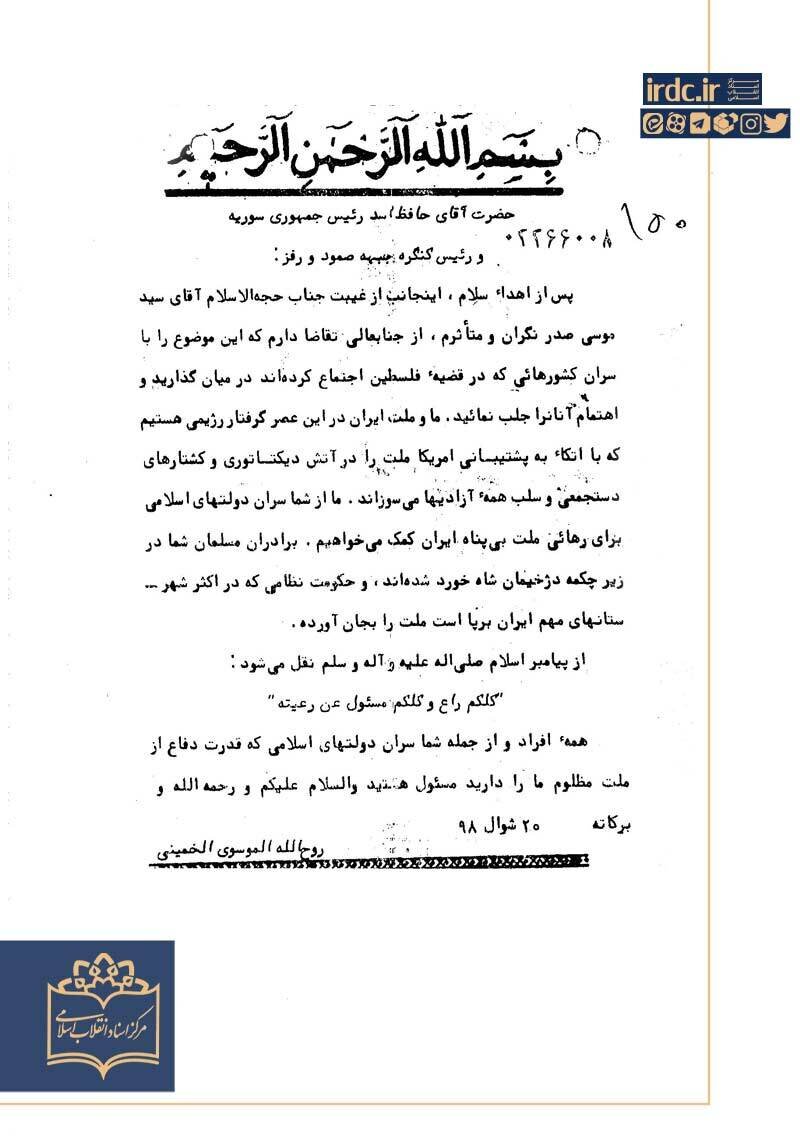 irdc.ir
مرکز اسناد انقلاب اسلامی
بسم الله الرحمن الرحیم
۱۵۰
حضرت آقای حافظ اسد رئیس جمهوری سوریه
۰۲۲۶۶۰۰۸
و رئیس کنگره جبهه صمود و رفز :
پس از اهداء سلام ، اینجانب از غیبت جناب حجه‌الاسلام آقای سید
موسی صدر نگران و متأثرم ، از جنابعالی تقاضا دارم که این موضوع را با
سران کشورهائی که در قضیهٔ فلسطین اجتماع کرده‌اند در میان گذارید و
اهتمام آنانرا جلب نمائید . ما و ملت ایران در این عصر گرفتار رژیمی هستیم
که با اتکاء به پشتیبانی امریکا ملت را در آتش دیکتاتوری و کشتارهای
دستجمعی و سلب همهٔ آزادیها می‌سوزاند . ما از شما سران دولتهای اسلامی
برای رهائی ملت بی‌پناه ایران کمک می‌خواهیم . برادران مسلمان شما در
زیر چکمه دژخیمان شاه خورد شده‌اند ، و حکومت نظامی که در اکثر شهر ـ
ستانهای مهم ایران برپا است ملت را بجان آورده .
از پیامبر اسلام صلی‌اله علیه و آله و سلم نقل می‌شود :
"کلکم راع و کلکم مسئول عن رعیته"
همهٔ افراد و از جمله شما سران دولتهای اسلامی که قدرت دفاع از
ملت مظلوم ما را دارید مسئول هستید والسلام علیکم و رحمه الله و
برکاته ۲۰ شوال ۹۸
روح‌الله الموسوی الخمینی
مرکز اسناد انقلاب اسلامی